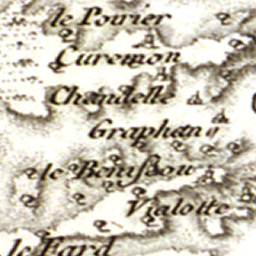 le Poirier
Curemon
Chandelle
Graphane
le Benissou
Vialotte
le Fard